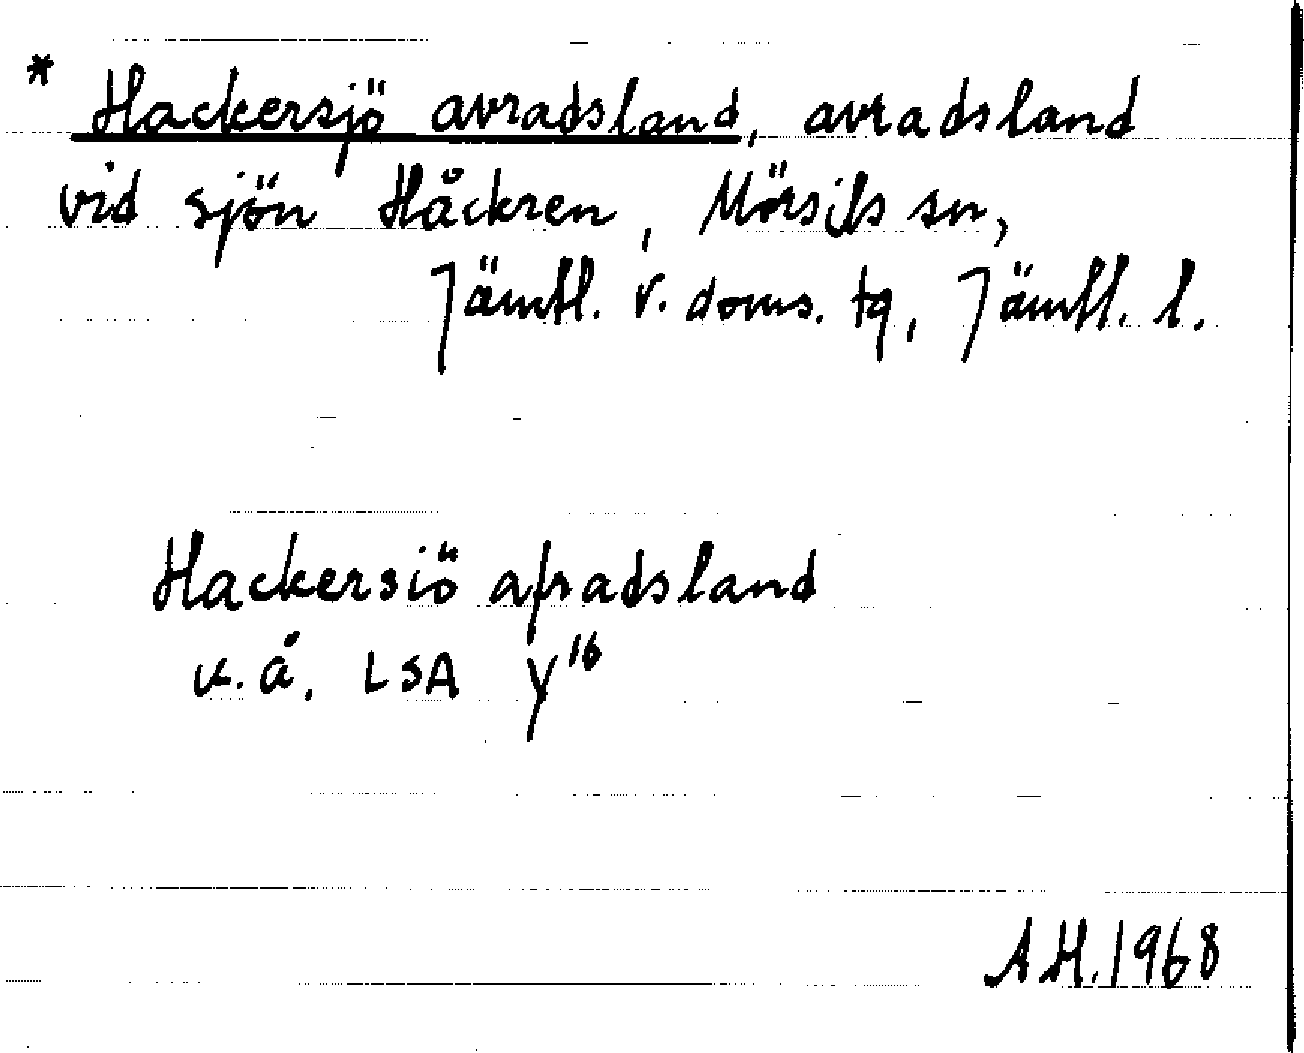 * Hackersjö avradsland, avradsland
vid sjön Håckren, Mörsils sn,
Jämtl. v. doms. tg, Jämtl. l.
Hackersiö afradsland
u.å. LSA Y16
A.H. 1968